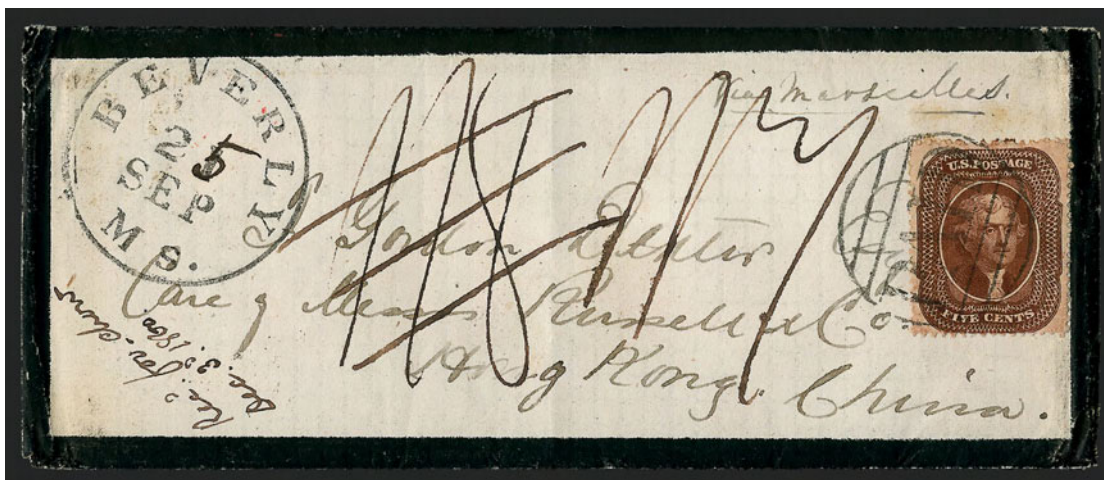 BEVERLY
25
SEP
MS.
via Marseilles.
U.S. POSTAGE
FIVE CENTS
PAID
Gordon Dexter
Care of Messrs Russell & Co.
Hong Kong. China.
Rec'd
Dec. 3d, 1860